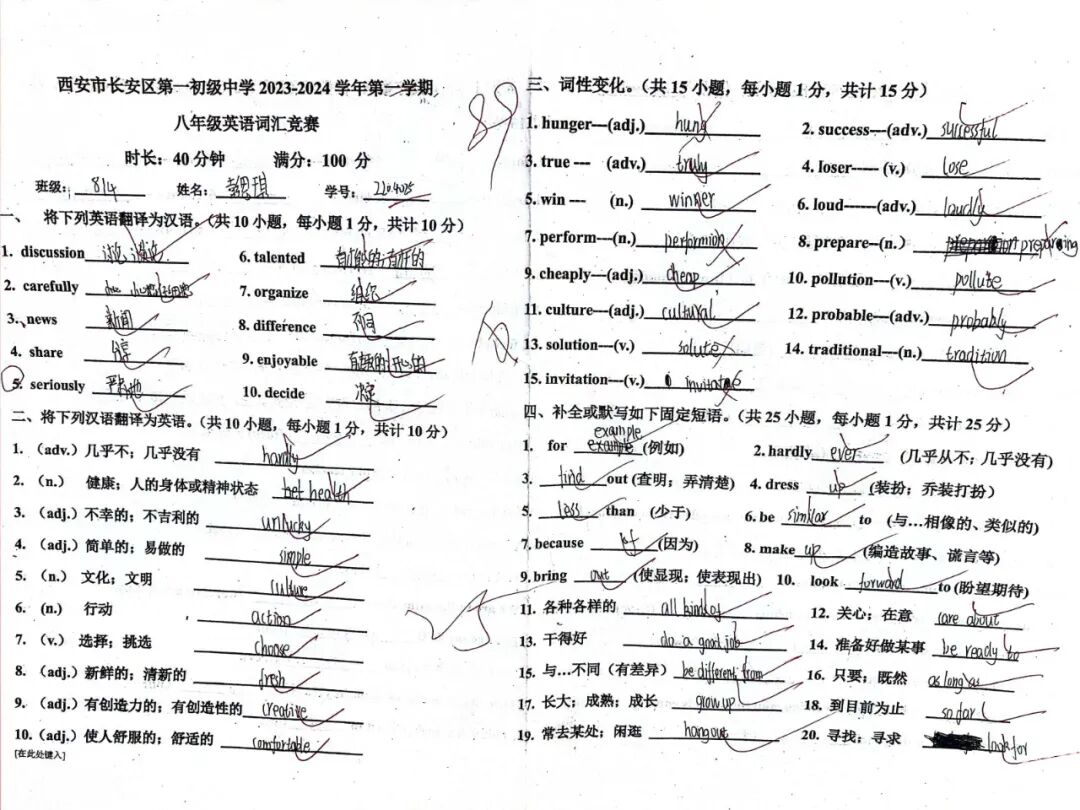 西安市长安区第一初级中学 2023-2024 学年第一学期
八年级英语词汇竞赛
时长：40 分钟 满分：100 分
班级：8/4 姓名： 学号：2204025
89
一、 将下列英语翻译为汉语。（共 10 小题，每小题 1 分，共计 10 分）
1. discussion 讨论 6. talented 有才能的；有才好的
2. carefully 7. organize 组织
3. news 新闻 8. difference 不同
4. share 分享 9. enjoyable 有乐趣的；开心的
5. seriously 严肃地 10. decide 决定
二、将下列汉语翻译为英语。（共 10 小题，每小题 1 分，共计 10 分）
1. （adv.）几乎不；几乎没有 hardly
2. （n.） 健康；人的身体或精神状态 health
3. （adj.）不幸的；不吉利的 unlucky
4. （adj.）简单的；易做的 simple
5. （n.） 文化；文明 culture
6. （n.） 行动 action
7. （v.） 选择；挑选 choose
8. （adj.）新鲜的；清新的 fresh
9. （adj.）有创造力的；有创造性的 creative
10.（adj.）使人舒服的；舒适的 comfortable
[在此处键入]
三、词性变化。（共 15 小题，每小题 1 分，共计 15 分）
1. hunger---(adj.) hung 2. success---(adv.) successful
3. true --- (adv.) truly 4. loser------ (v.) lose
5. win --- (n.) winner 6. loud------(adv.) loudly
7. perform---(n.) performion 8. prepare--(n.） preparing
9. cheaply---(adj.) cheap 10. pollution---(v.) pollute
11. culture---(adj.) cultural 12. probable---(adv.) probably
13. solution---(v.) solute 14. traditional---(n.) tradition
15. invitation---(v.) invitate
四、补全或默写如下固定短语。（共 25 小题，每小题 1 分，共计 25 分）
example
1. for example (例如) 2.hardly ever (几乎从不；几乎没有)
3. find out (查明；弄清楚) 4. dress up (装扮；乔装打扮)
5. less than (少于) 6.be similar to (与…相像的、类似的)
7. because of (因为) 8. make up (编造故事、谎言等)
9. bring out (使显现；使表现出) 10. look forward to (盼望期待)
11. 各种各样的 all kind of 12. 关心；在意 care about
13. 干得好 do a good job 14. 准备好做某事 be ready to
15. 与…不同（有差异） be different from 16. 只要；既然 as long as
17. 长大；成熟；成长 grow up 18. 到目前为止 so far
19. 常去某处；闲逛 hang out 20. 寻找；寻求 look for